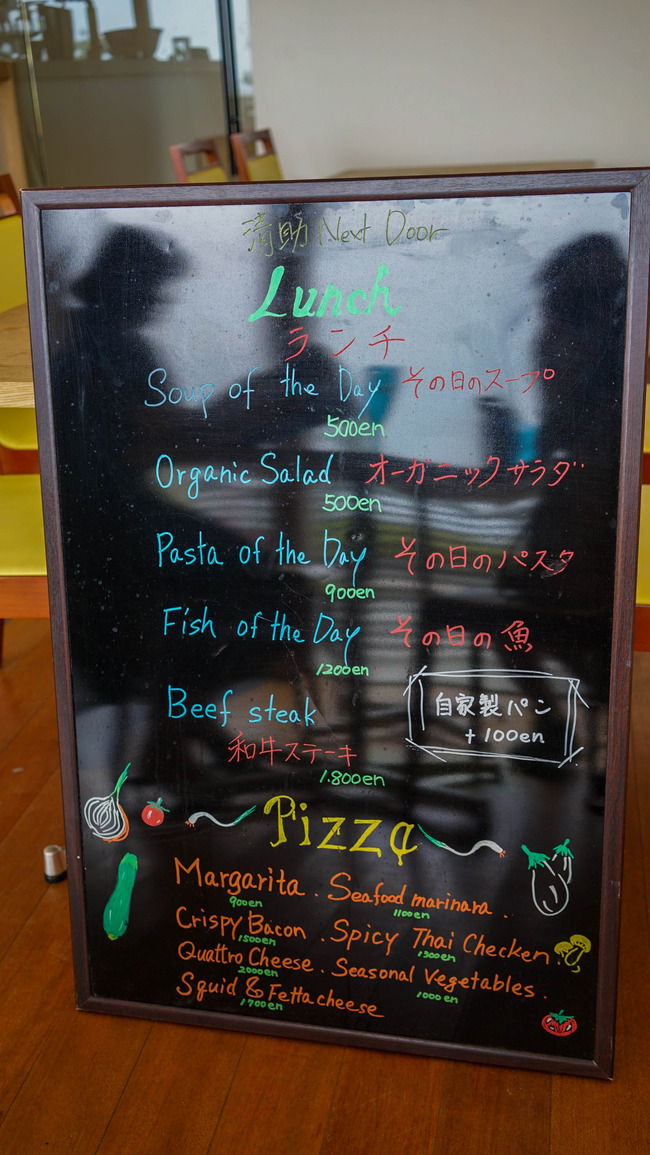 清助 Next Door
Lunch
ランチ
Soup of the Day その日のスープ
500en
Organic Salad オーガニックサラダ
500en
Pasta of the Day その日のパスタ
900en
Fish of the Day その日の魚
1200en
Beef steak
和牛ステーキ
1.800en
自家製パン
+ 100en
Pizza
Margarita . Seafood marinara .
900en 1100en
Crispy Bacon . Spicy Thai Checken .
1500en 1300en
Quattro Cheese . Seasonal Vegetables .
2000en 1000en
Squid & Fetta cheese
1700en